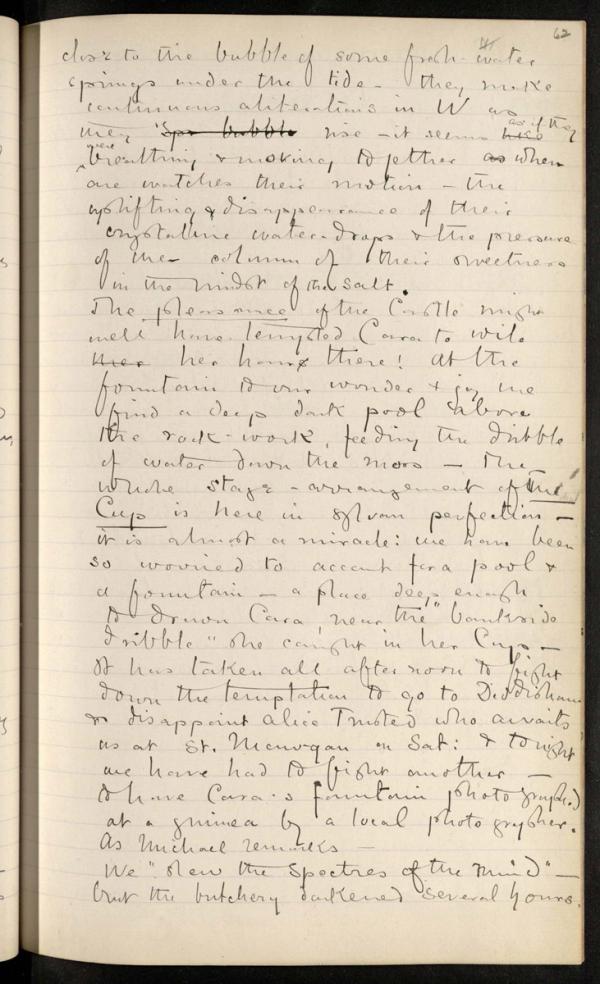 62
close to the bubble of some fresh-water
springs under the tide - they make
continuous aliterations in W as
they spr bubble rise - it seems as if they
were breathing & moving together as when
one watches their motion - the
uplifting & disappearance of their
crystaline water-drops & the pressure
of the column of their sweetness
in the midst of the salt.
The pleasance of the Castle might
well have tempted Cara to wile
her hours there! At the
fountain to our wonder & joy we
find a deep dark pool above
the rock-work, feeding the dribble
of water down the moss - The
whole stage-arrangement of the
Cup is here in sylvan perfection -
it is almost a miracle: we have been
so worried to account for a pool &
a fountain - a place deep enough
to drown Cara, near the "bankside
dribble" she caught in her Cup -
It has taken all afternoon to fight
down the temptation to go to
& disappoint Alice Trusted who awaits
us at St. Mawgan on Sat: & tonight
we have had to fight another -
to have Cara's fountain photographed
at a guinea by a local photographer.
As Michael remarks -
We "slew the Spectres of the mind" -
but the butchery darkened several hours.